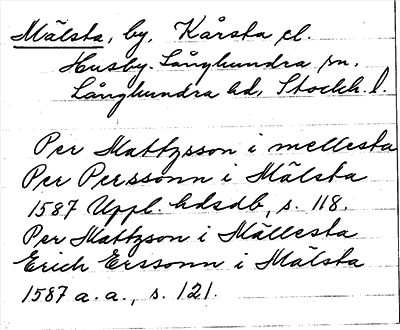 Mälsta, by, Kårsta el.
Husby-Långhundra sn,
Långhundra hd, Stockh. l.
Per Mattzsson i mellesta
Per Perssonn i Mälsta
1587 Uppl. hdsdb, s. 118.
Per Mattzson i Mällesta
Erich Erssonn i Mälsta
1587 a. a., s. 121.